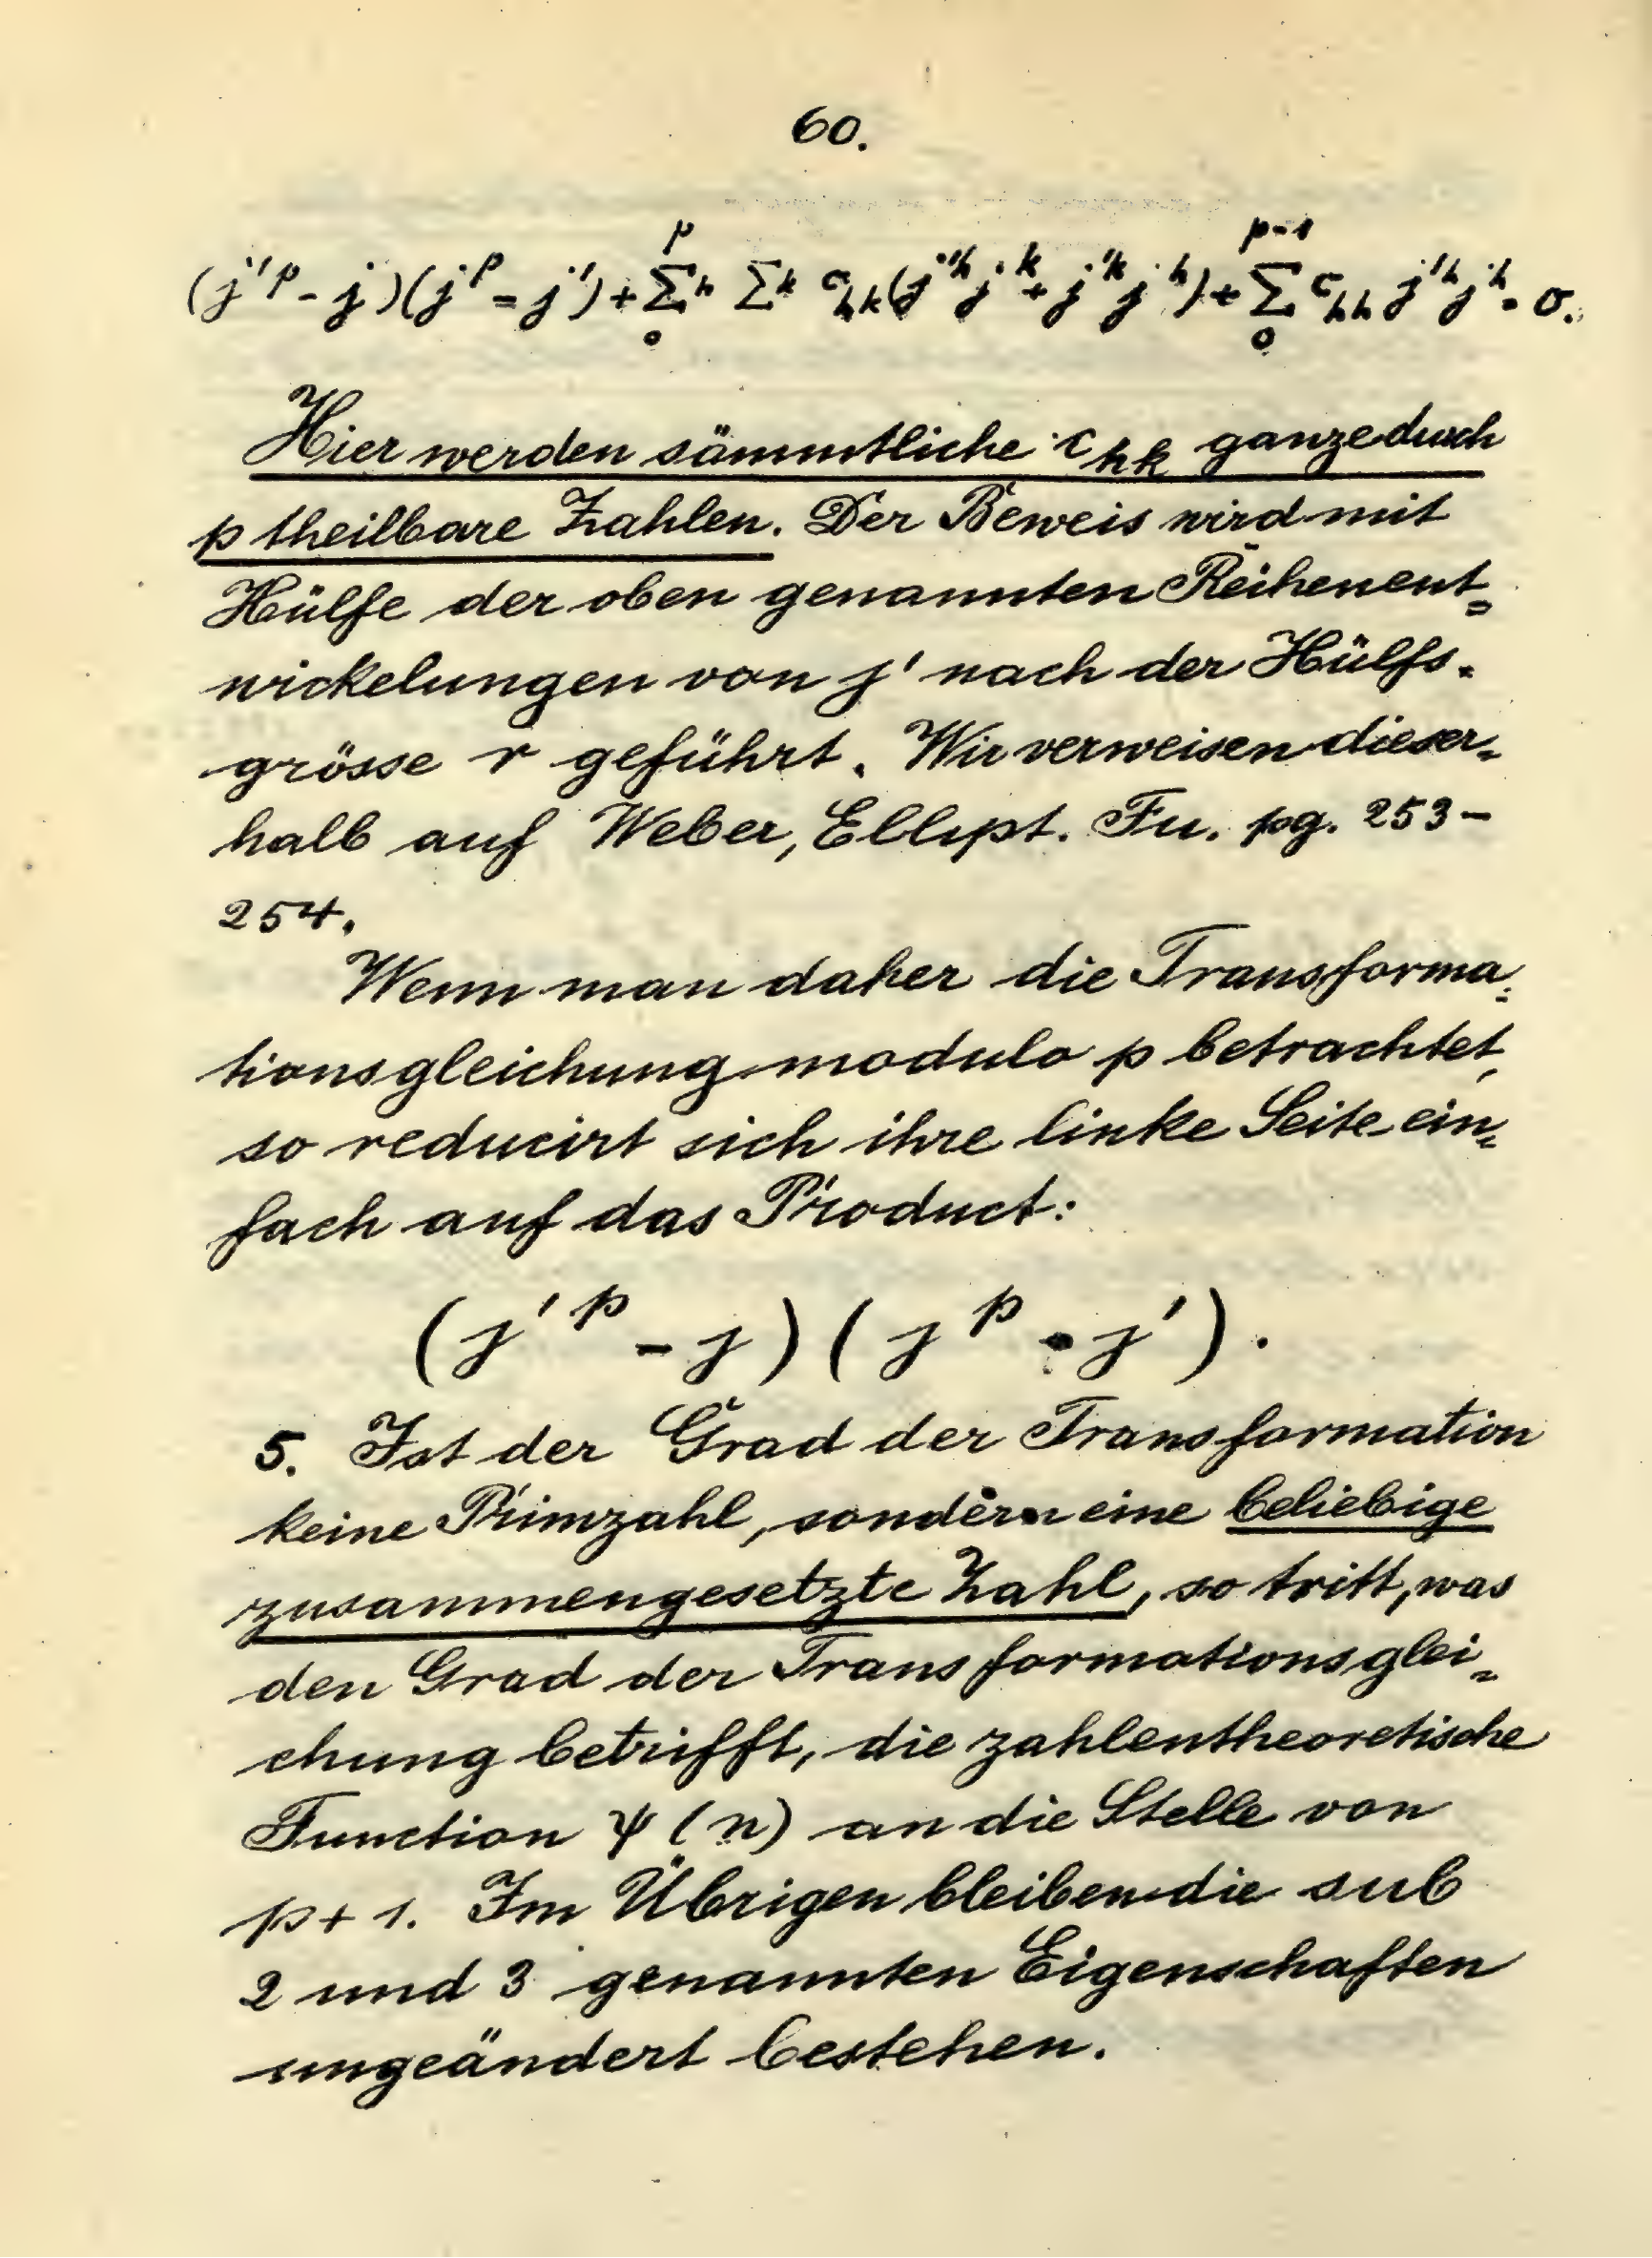 60.
(j'^p - j)(j^p - j') + \sum_0^p h \sum k c_{hk}(j'^h j^k + j'^k j^h) + \sum_0^{p-1} c_{hh} j'^h j^h = 0.
Hier werden sämmtliche c_{hk} ganze durch
p theilbare Zahlen. Der Beweis wird mit
Hülfe der oben genannten Reihenent=
wickelungen von j' nach der Hülfs-
grösse r geführt. Wir verweisen dieser-
halb auf Weber, Ellipt. Fu. pg. 253-
254.
Wenn man daher die Transforma=
tionsgleichung modulo p betrachtet,
so reducirt sich ihre linke Seite ein=
fach auf das Product:
(j'^p - j)(j^p - j').
5. Ist der Grad der Transformation
keine Primzahl, sondern eine beliebige
zusammengesetzte Zahl, so tritt, was
den Grad der Transformationsglei=
chung betrifft, die zahlentheoretische
Function ψ(n) an die Stelle von
p+1. Im Übrigen bleiben die sub
2 und 3 genannten Eigenschaften
ungeändert bestehen.